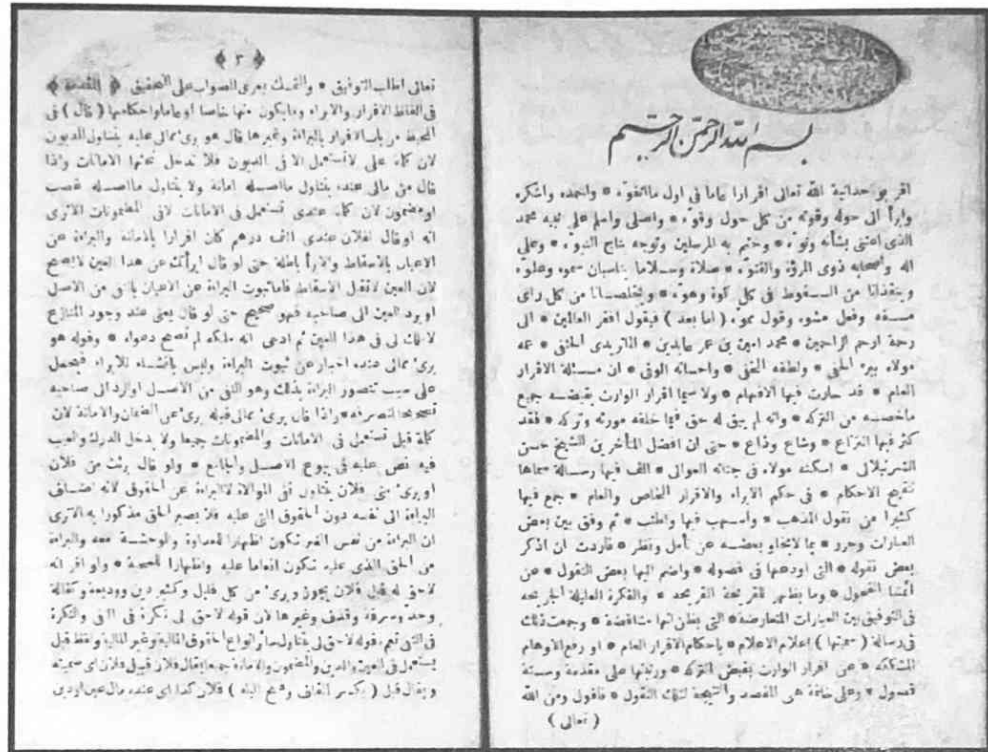 بسم الله الرحمن الرحيم
اقر بوحدانية الله تعالى اقرارا عاما في اول ماأتفوه * واحمده واشكره
وابرأ الى حوله وقوته من كل حول وقوه * واصلي واسلم على نبيه محمد
الذي اعتنى بشأنه ونوه * وختم به المرسلين وتوجه بتاج النبوه * وعلى
اله واصحابه ذوي المروة والفتوه * صلاة وسلاما يناسبان سموه وعلوه
وينقذانا من السقوط في كل كوة وهوه * ويخلصانا من كل راى
مسفه وفعل مشوه وقول مموه ( اما بعد ) فيقول افقر العالمين * الى
رحمة ارحم الراحمين * محمد امين بن عمر عابدين * الماتريدى الحنفى * عمه
مولاه ببره الحفى * ولطفه الخفى * واحسانه الوفى * ان مسئلة الاقرار
العام * قد حارت فيها الافهام * ولا سيما اقرار الوارث بقبضه جميع
ماخصه من التركه * وانه لم يبق له حق فيما خلفه مورثه وتركه * فقد
كثر فيها النزاع * وشاع وذاع * حتى ان افضل المتأخرين الشيخ حسن
الشرنبلالى * اسكنه مولاه في جنانه العوالى * الف فيها رسالة سماها
تنقيح الاحكام * في حكم الابراء والاقرار الخاص والعام * جمع فيها
كثيرا من نقول المذهب * واسهب فيها واطنب * ثم وفق بين بعض
العبارات وحرر * بما لايخلو بعضه عن تأمل ونظر * فاردت ان اذكر
بعض نقوله * التى اودعها في فصوله * واضم اليها بعض النقول * عن
أئمتنا الفحول * وما يظهر للقريحة القريحه * والفكرة العليلة الجريحه
في التوفيق بين العبارات المتعارضه * التى يظن انها متناقضة * وجمعت ذلك
في رسالة ( سميتها ) إعلام الاعلام * باحكام الاقرار العام * او رفع الاوهام
المشككه * عن اقرار الوارث بقبض التركه * ورتبتها على مقدمة وستة
فصول * وعلى خاتمة هى المقصد والنتيجة لتلك النقول * فاقول ومن الله
( تعالى )
﴿ ٣ ﴾
تعالى اطلب التوفيق * والتمسك بعرى الصواب على التحقيق ﴿ المقدمة ﴾
في الفاظ الاقرار والابراء ومايكون منها خاصا او عاما واحكامها ( قال ) في
المحيط من باب الاقرار بالبراءة وغيرها قال هو برئ مما لى عليه يتناول الديون
لان كلمة على لاتستعمل الا في الديون فلا تدخل تحتها الامانات واذا
قال من مالى عنده يتناول مااصله امانة ولا يتناول مااصله غصب
او مضمون لان كلمة عندى تستعمل في الامانات لافى المضمونات الاترى
انه لو قال لفلان عندى الف درهم كان اقرارا بالامانة والبراءة عن
الاعيان بالاسقاط والابرأ باطلة حتى لو قال ابرأتك عن هذا العين لايصح
لان العين لاتقبل الاسقاط فاما ثبوت البراءة عن الاعيان بالنفى من الاصل
او برد العين الى صاحبه فهو صحيح حتى لو قال يعنى عند وجود المنازع
لاملك لى فى هذا العين ثم ادعى انه ملكه لم تصح دعواه * وقوله هو
برئ مما لى عنده اخبار عن ثبوت البراءة وليس بانشاء للابراء فيحمل
على سبب تتصور البراءة بذلك وهو النفى من الاصل او الرد الى صاحبه
تصحيحا لتصرفه * واذا قال برئ مما لى قبله برئ عن الضمان والامانة لان
كلمة قبل تستعمل فى الامانات والمضمونات جميعا ولا يدخل الدرك والعيب
فيه نص عليه في بيوع الاصل والجامع * ولو قال برئت من فلان
او برئ منى فلان يتناول نفى الموالاة لاالبراءة عن الحقوق لانه اضاف
البراءة الى نفسه دون الحقوق التى عليه فلا يصير الحق مذكورا به الاترى
ان البراءة من نفس الغير تكون اظهارا للعداوة والوحشة معه والبراءة
من الحق الذى عليه تكون انعاما عليه واظهارا للمحبة * ولو اقر انه
لاحق له قبل فلان يجوز وبرئ من كل قليل وكثير دين ووديعة وكفالة
وحد وسرقة وقذف وغيرها لان قوله لاحق لى نكرة فى النفى والنكرة
فى النفى تعم فقوله لاحق لى يتناول سائر انواع الحقوق المالية وغير المالية ولفظ قبل
يستعمل فى العين والدين والمضمون والامانة جميعا يقال فلان قبيل فلان اى ضمينه
ويقال قبل ( بكسر القاف وفتح الباء ) فلان كذا اى عنده مال عين او دين